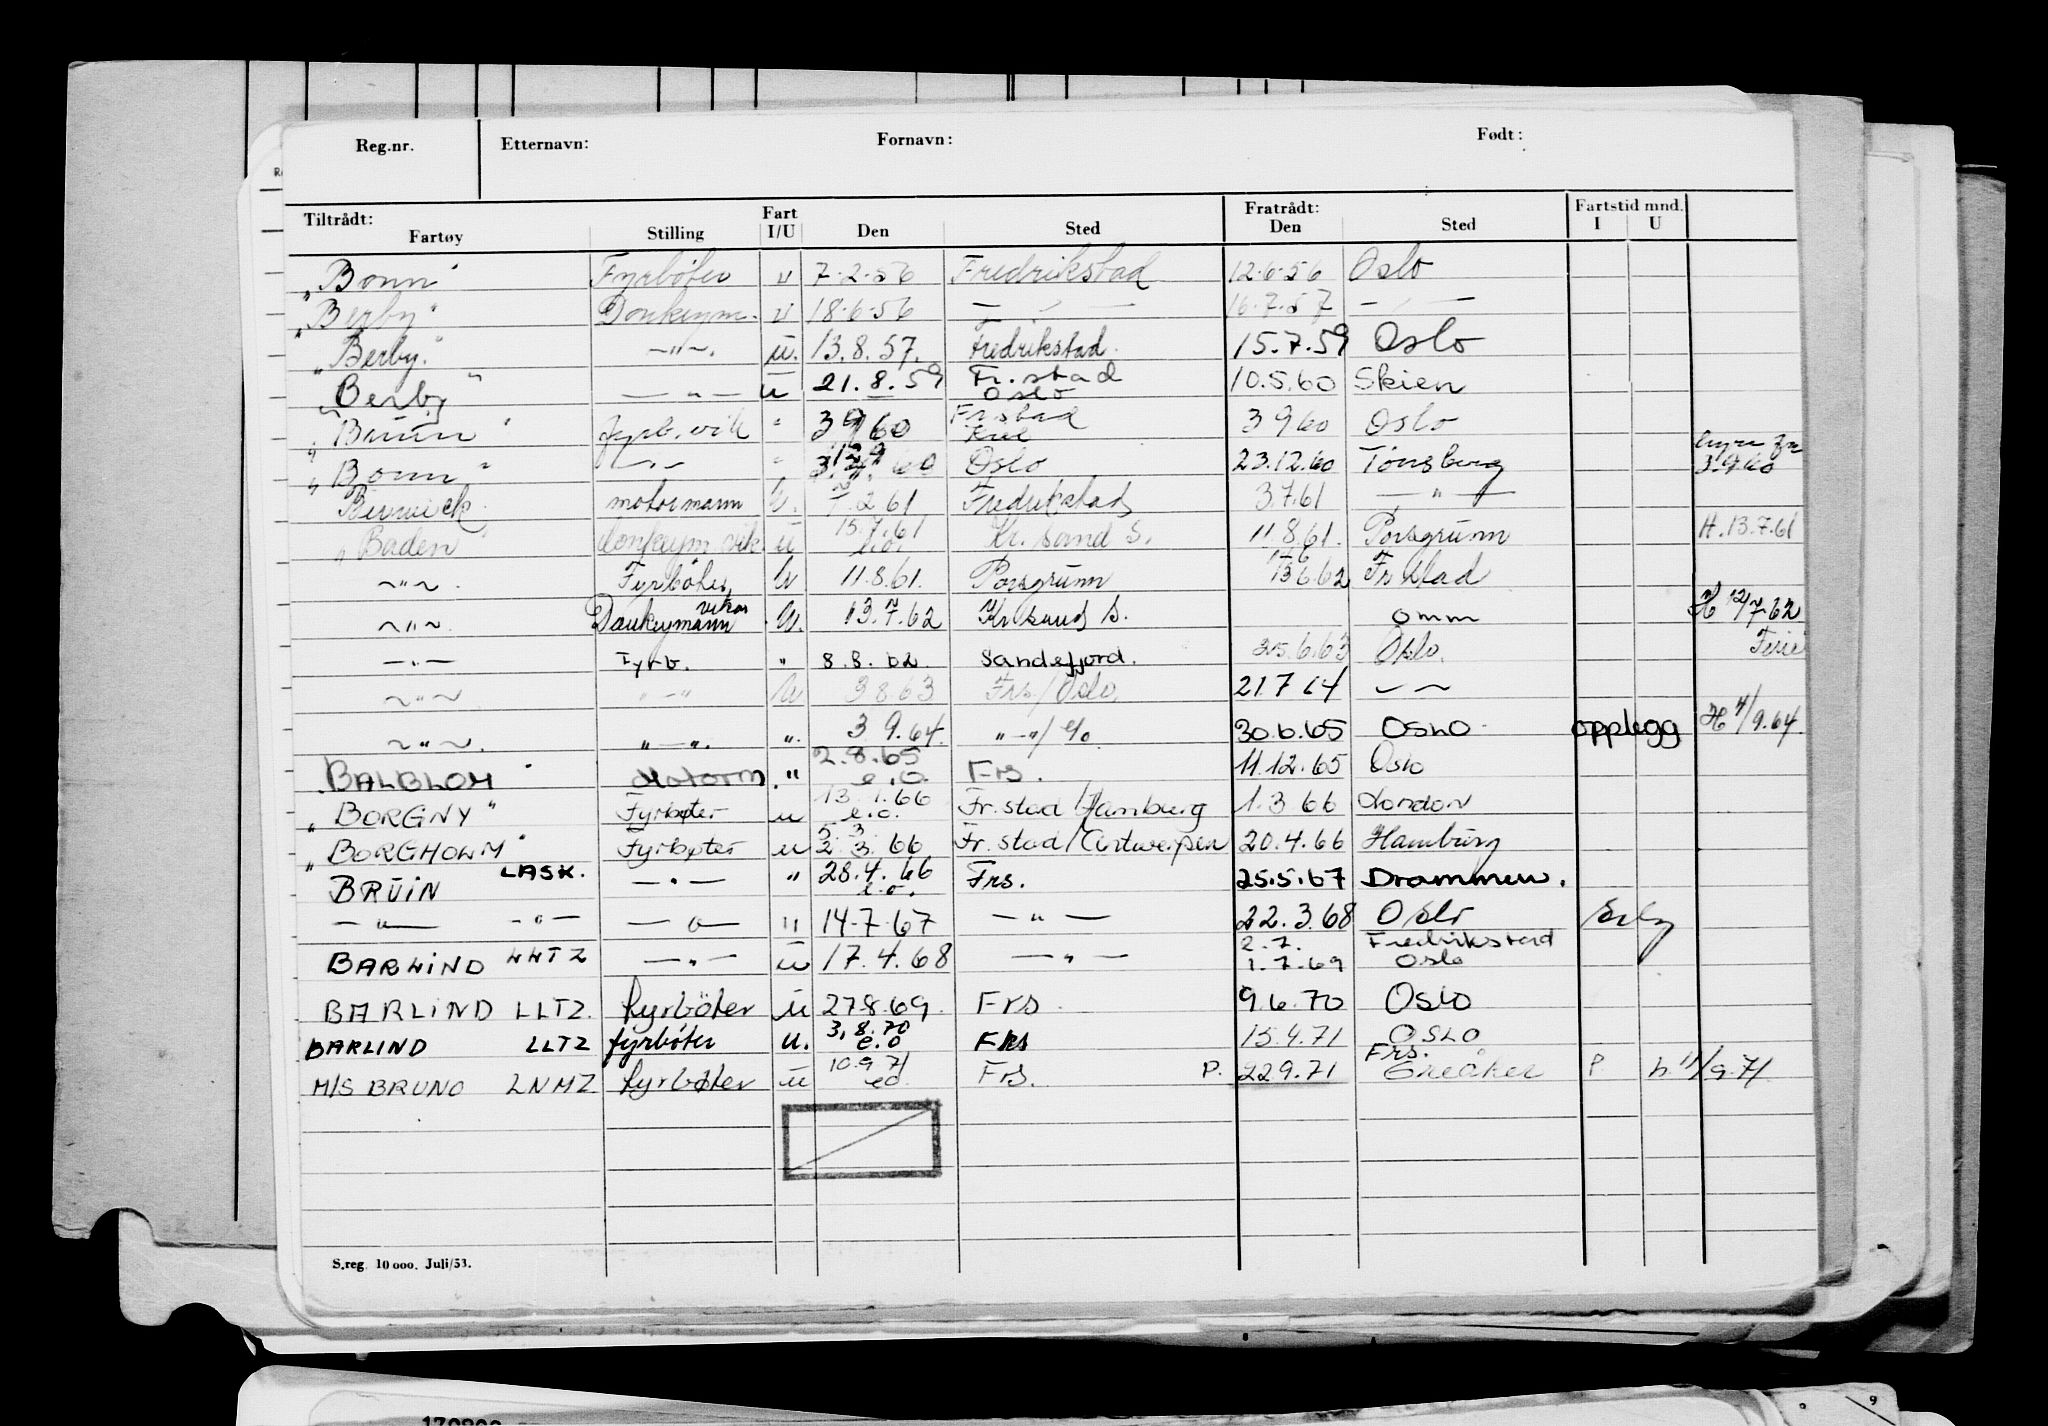 Reg.nr. Etternavn: Fornavn: Født:
Tiltrådt: Fartøy Stilling Fart I/U Den Sted Fratrådt: Den Sted Fartstid mnd. I U
"Bonn" Fyrbøter u 7.2.56 Fredrikstad 12.6.56 Oslo
"Berby" Donkeym. u 18.6.56 — " — 16.7.57 — " —
"Berby" — " —. u. 13.8.57. Fredrikstad. 15.7.59 Oslo
"Berby" — " — u 21.8.59 Fr.stad Oslo 10.5.60 Skien
"Bruin" fyrb. vik " 3 9 60 Frstad 3 9 60 Oslo
"Bonn" — " — " 60 Oslo 23.12.60 Tönsberg 3.9.60
Berwick motormann u. 2 61 Fredrikstad 3.7.61 — " —
"Baden" donkeym. vik. u 13.7.61 e.o. Kr. sand S. 11.8.61. Porsgrunn H. 13.7.61
— " —. Fyrbøter u 11.8.61. Porsgrunn 13.6.62 Fr stad
— " —. Donkeymann vikar u. 13.7.62 Kr.sand S. omm H 12/7.62
— " — Fyrb. " 8.8.62. Sandefjord. 25.6.63 Oslo. Ferie
— " — " — " u 3 8 63 Frs/Oslo. 21 7 64 — " —
— " —. " — ". ". 3 9.64. " — "/e/o 30.6.65 OSLO opplegg H 4/9.64.
BALBLOM" Motorm. " 2.8.65 e.o. Frs. 11.12.65 Oslo
"BORGNY" Fyrbøter u 13.1.66 e.o. Fr.stad/Hamburg 1.3 66 London
"BORGHOLM" Fyrbøter u 5.3. 2.3.66 Fr.stad/Antwerpen 20.4.66 Hamburg
BRUIN LASK. — " — " 28.4.66 e.o. Frs. 25.5.67 Drammen.
— " — — " — — " — " 14.7.67 — " — 22.3.68 Oslo
BARLIND LLTZ — " — u 17.4.68 — " — 2.7. 1.7.69 Fredrikstad Oslo
BARLIND LLTZ. fyrbøter u 27.8.69. Frs. 9.6.70 Oslo
BARLIND LLTZ fyrbøter u. 3.8.70 e.o FRS 15.4.71 OSLO
M/S BRUNO LNMZ fyrbøter u 10.9.71 eo Frs. P. 22.9.71 Frs. Greåker P. h 11/9.71.
S.reg. 10 000. Juli/53.